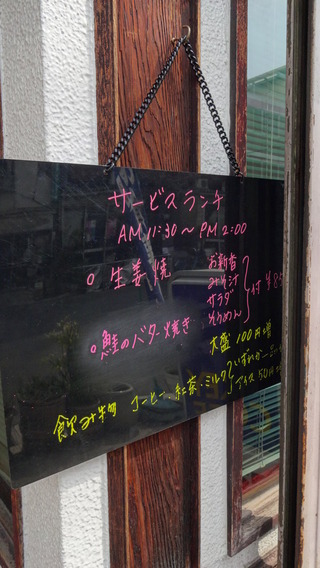 サービスランチ
AM 11:30〜PM 2:00
○生姜焼
お新香
みそ汁
サラダ
そうめん
付 ¥85
○鮭のバター焼き
大盛 100円増
飲み物 コーヒー 紅茶・ミルク
いずれか
アイス 50円